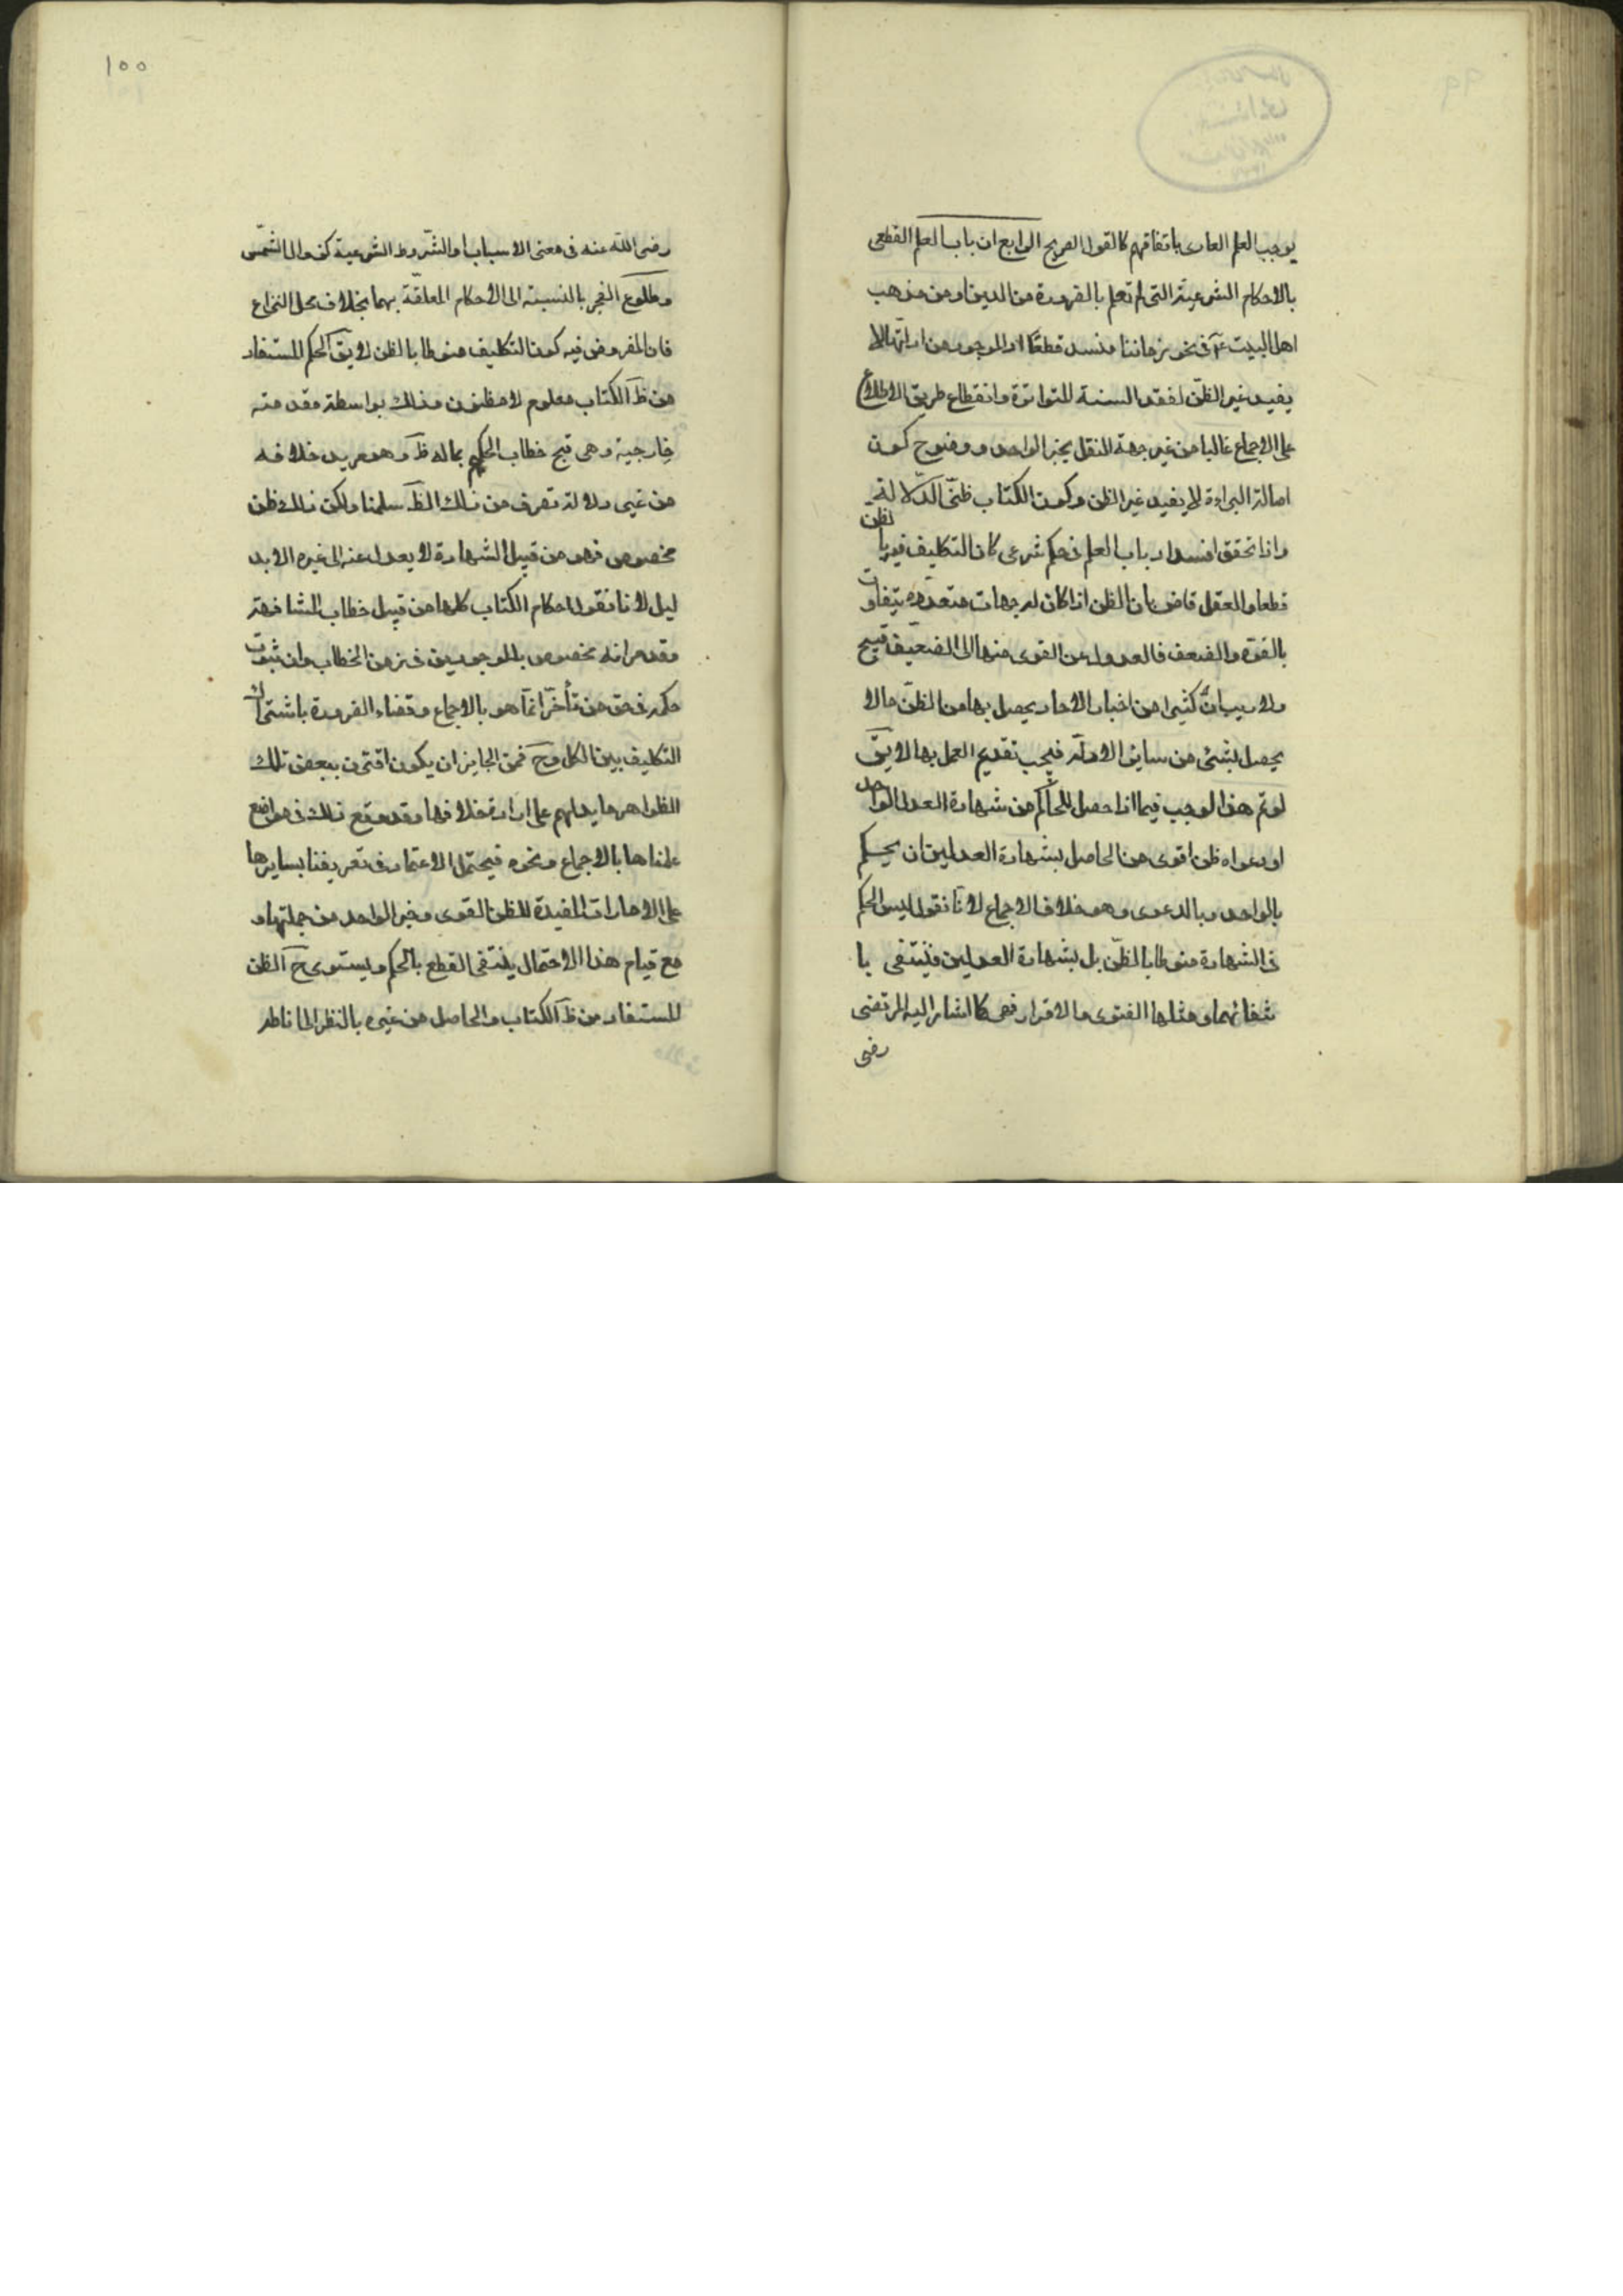 يوجب العلم العادى باتفاقهم كالقول الصريح الرابع ان باب العلم القطعى
بالاحكام الشرعية التى لم تعلم بالضرورة من الدين او من مذهب
اهل البيت عم فى نحو زماننا منسد قطعًا اذ الموجود من ادلتها لا
يفيد غير الظن لفقد السنة المتواترة وانقطاع طريق الاطلاع
على الاجماع غالبا من غير جهة النقل بخبر الواحد ووضوح كون
اصالة البراءة لا يفيد غير الظن وكون الكتاب ظنّى الدلالة
واذا تحقق انسداد باب العلم فى حكم شرعى كان التكليف فيه بالظن
قطعا والعقل قاض بان الظن اذا كان له جهات متعدّده يتفاوت
بالقوة والضعف فالعدول عن القوى منها الى الضعيف قبيح
ولا ريب انّ كثيرا من اخبار الاحاد يحصل بها من الظنّ ما لا
يحصل بشئ من ساير الادلّة فيجب تقديم العمل بها لا يقّ
لو تم هذا لوجب فيما اذا حصل للحاكم من شهادة العدل الواحد
او دعواه ظن اقوى من الحاصل بشهادة العدلين ان يحكم
بالواحد وبالدعوى وهو خلاف الاجماع لانّا نقول ليس الحكم
فى الشهادة منوطا بالظنّ بل بشهادة العدلين فينتفى با
نتفائهما ومثلها الفتوى والاقرار فهى كما اشار اليه المرتضى
رضى
١٠٠
رضى اللّه عنه فى معنى الاسباب او الشّروط الشرعية كزوال الشّمس
وطلوع الفجر بالنسبة الى الاحكام المعلقة بهما بخلاف محل النزاع
فان المفروض فيه كون التكليف منوطا بالظن لا يقّ الحكم المستفاد
من ظ الكتاب معلوم لا مظنون وذلك بواسطة مقدمة
خارجية وهى قبح خطاب الحكيم بما له ظ وهو يريد خلافه
من غير دلالة تصرف من ذلك الظ سلمنا ولكن ذلك ظن
مخصوص فهو من قبيل الشهادة لا يعدل عنه الى غيره الا بد
ليل لانا نقول احكام الكتاب كلها من قبيل خطاب المشافهة
وقد مر انه مخصوص بالموجودين فى زمن الخطاب وان ثبوت
حكمه فى حق من تأخّر انّما هو بالاجماع وقضاء الضرورة باشتراك
التكليف بين الكل وح فمن الجايز ان يكون اقترن ببعض تلك
الظواهر ما يدلهم على ارادة خلافها وقد وقع ذلك فى مواضع
علمناها بالاجماع ونحوه فيحتمل الاعتماد فى تعريفنا بسايرها
على الامارات المفيدة للظن القوى وخبر الواحد من جملتها و
مع قيام هذا الاحتمال ينتفى القطع بالحكم ويستوى ح الظن
المستفاد من ظ الكتاب والحاصل من غيره بالنظر الى اناطه